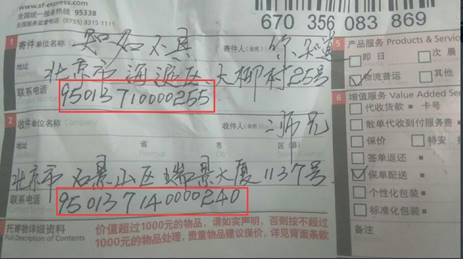 www.sf-express.com
全国统一服务热线 95338
670 356 083 869
1 寄件单位名称 知名不具
地址
北京市通遁区大柳村25号
联系电话
95013710000255
2 收件单位名称 收件人 二师兄
地址
北京市石景山区瑞景大厦1137号
联系电话
95013714000240
3 托寄物详细资料
Full Description of Contents
价值超过1000元的物品，请如实声明，否则按不超过
1000元的物品处理，贵重物品建议保价，详见背面条款
5 产品服务 Products & Service
即日 次晨
物流普运 其他
6 增值服务 Value Added Ser
代收货款 卡号
散单代收到付服务费
保价 特安
签单返还
保单配送
个性化包装
标准化包装
备注